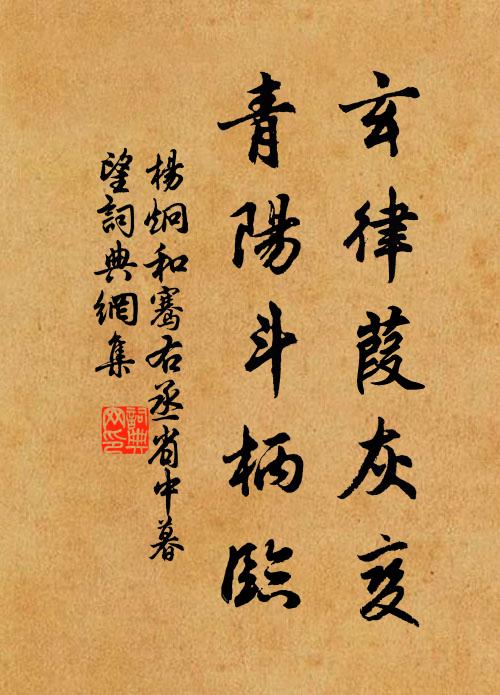 玄律葭灰变
青陽斗柄臨
楊炯和騫右丞省中暮
望詞典網集
詞典網印